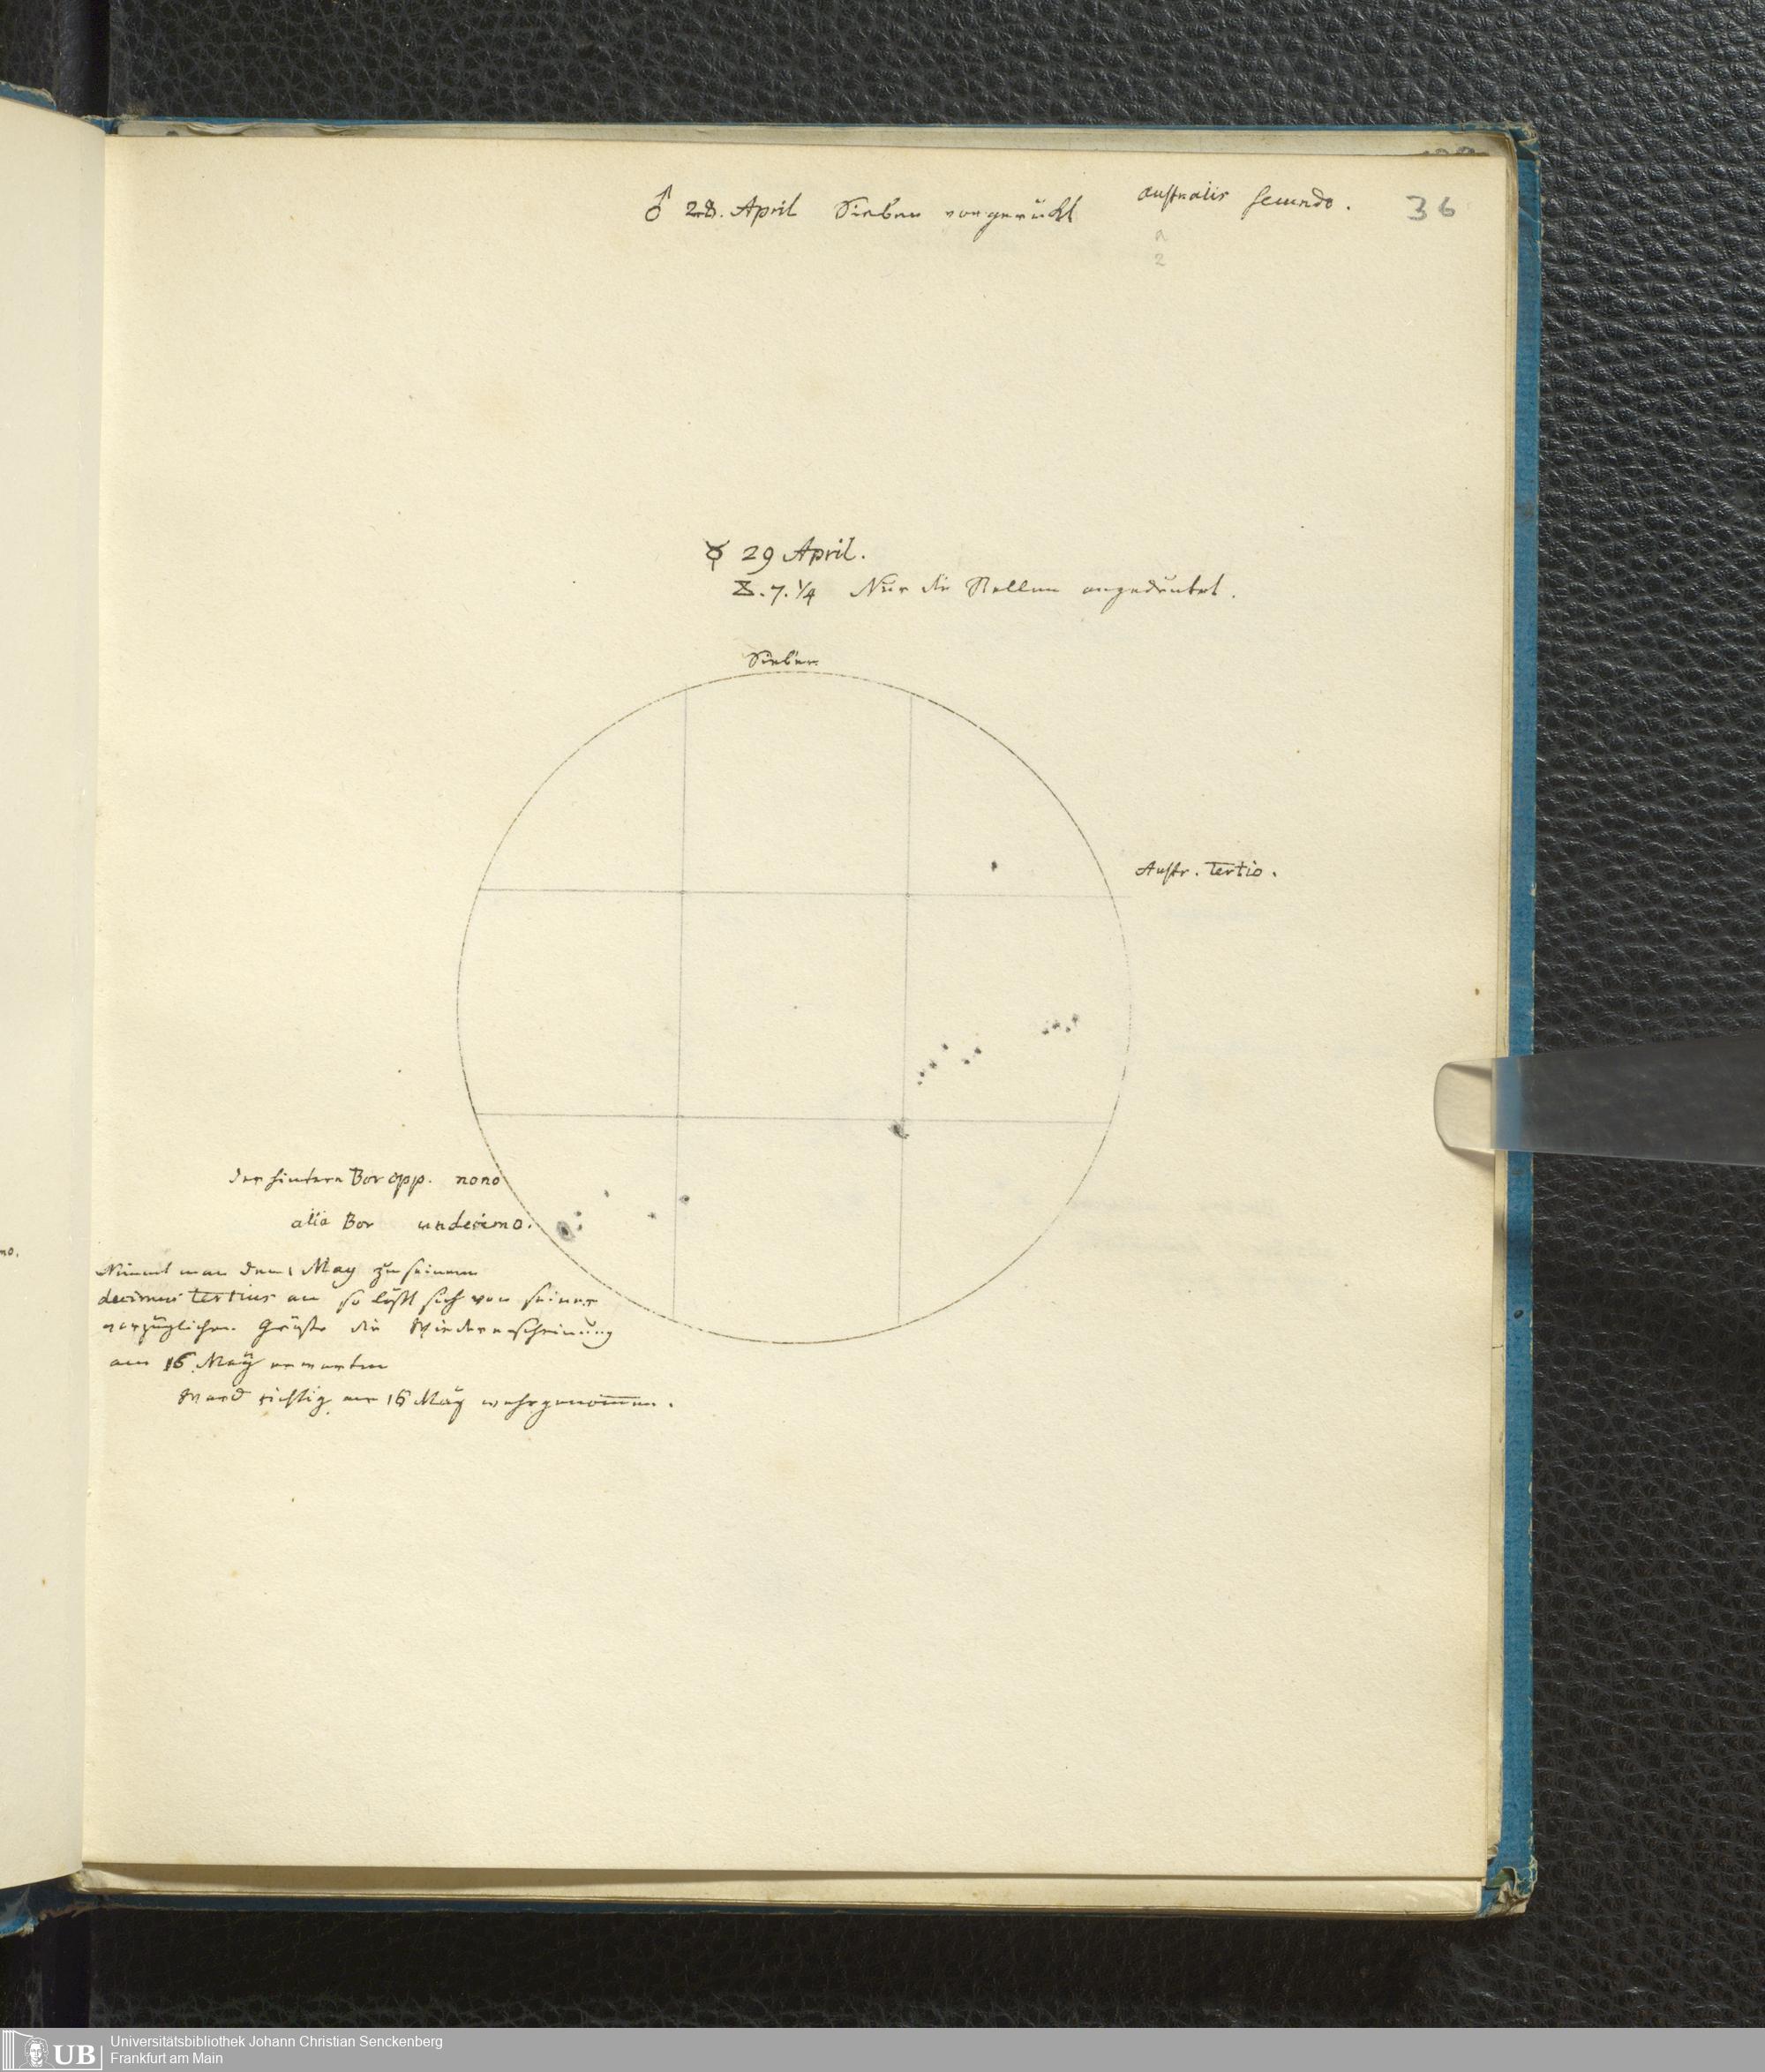 ♂ 28. April Sieben vorgerückt australis secundo.
36
a
2
☿ 29 April.
7. 1/4 Nur die Stellen angedeutet.
Sieben
Austr. tertio.
der hintere Bor opp. nono
alia Bor undecimo.
no.
Nimmt man den 1 May zu seinem
decimus tertius an so läßt sich von seiner
vorzüglichen Größe die Wiedererscheinung
am 16 May erwarten
Ward richtig am 16 May wahrgenommen.
UB
Universitätsbibliothek Johann Christian Senckenberg
Frankfurt am Main